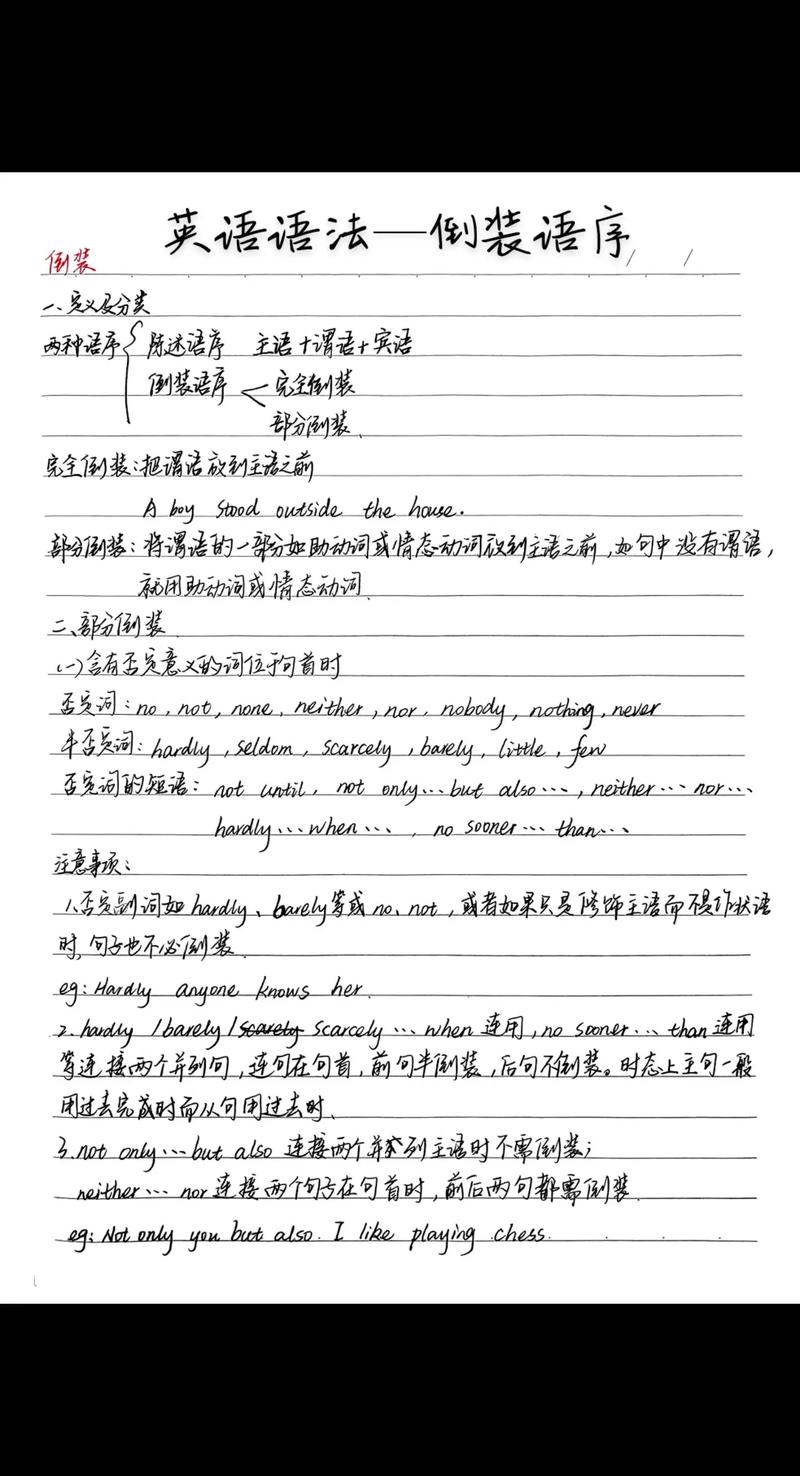 英语语法—倒装语序
倒装 / /
一、定义及分类
两种语序 陈述语序 主语+谓语+宾语
倒装语序 完全倒装
部分倒装.
完全倒装:把谓语放到主语之前
A boy stood outside the house.
部分倒装:将谓语的一部分如助动词或情态动词放到主语之前,如句中没有谓语,
就用助动词或情态动词.
二、部分倒装.
(一)含有否定意义的词位于句首时
否定词:no, not, none, neither, nor, nobody, nothing, never
半否定词:hardly, seldom, scarcely, barely, little, few
否定词的短语:not until, not only…but also…, neither…nor…
hardly…when…, no sooner…than…
注意事项:
1.否定副词如hardly、barely等或no、not,或者如果只是修饰主语而不是作状语
时,句子也不必倒装.
eg:Hardly anyone knows her.
2.hardly/barely/scarcely…when连用,no sooner…than连用
等连接两个并列句,连句在句首,前句半倒装,后句不倒装。时态上主句一般
用过去完成时而从句用过去时.
3.not only…but also 连接两个并列主语时不需倒装;
neither…nor连接两个句子在句首时,前后两句都需倒装.
eg:Not only you but also. I like playing chess.